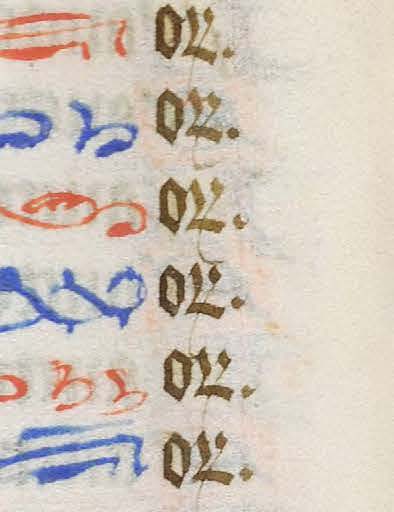 or.
or.
or.
or.
or.
or.